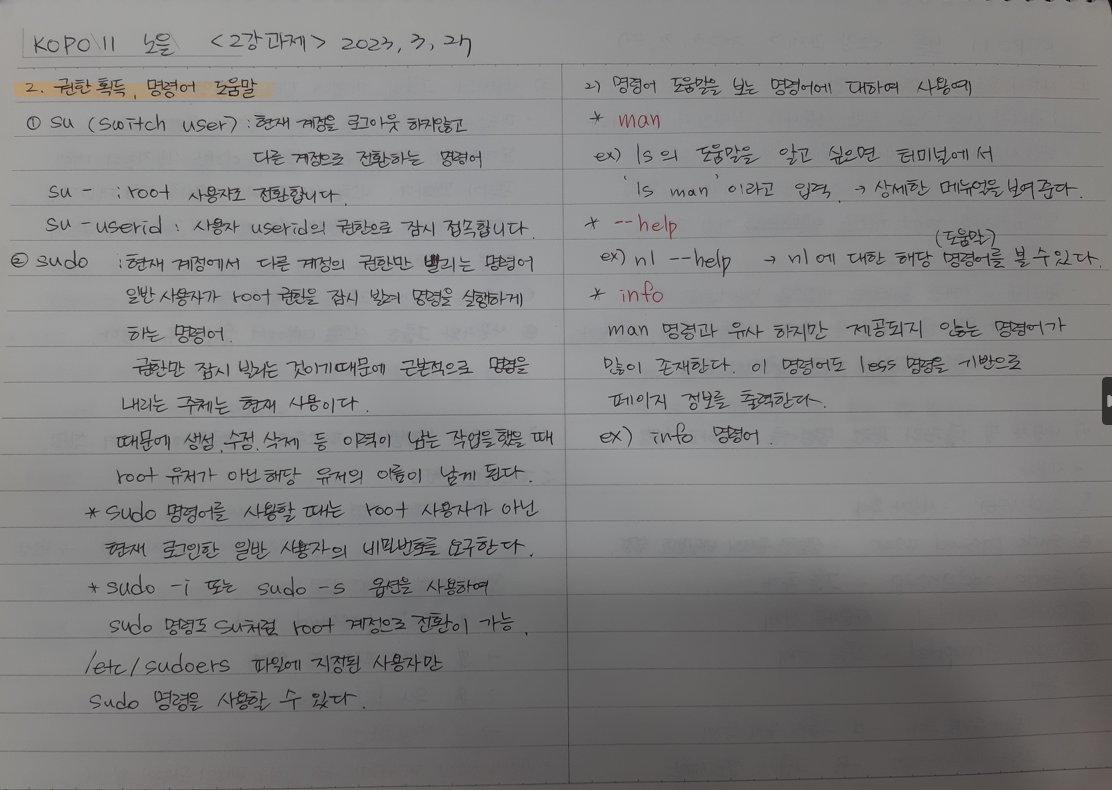 KOPO11 노을 <2강과제> 2023, 3, 27
2. 권한 획득, 명령어 도움말
① su (switch user) : 현재 계정을 로그아웃 하지않고
다른 계정으로 전환하는 명령어
su - : root 사용자로 전환합니다.
su - userid : 사용자 userid의 권한으로 잠시 접속합니다.
② sudo : 현재 계정에서 다른 계정의 권한만 빌리는 명령어
일반 사용자가 root 권한을 잠시 빌려 명령을 실행하게
하는 명령어.
권한만 잠시 빌리는 것이기때문에 근본적으로 명령을
내리는 주체는 현재 사용이다.
때문에 생성, 수정, 삭제 등 이력이 남는 작업을했을 때
root 유저가 아닌 해당 유저의 이름이 남게 된다.
* sudo 명령어를 사용할 때는 root 사용자가 아닌
현재 로그인한 일반 사용자의 비밀번호를 요구한다.
* sudo -i 또는 sudo -s 옵션을 사용하여
sudo 명령도 su처럼 root 계정으로 전환이 가능.
/etc/sudoers 파일에 지정된 사용자만
sudo 명령을 사용할 수 있다.
2) 명령어 도움말을 보는 명령어에 대하여 사용예
* man
ex) ls 의 도움말을 알고 싶으면 터미널에서
'ls man' 이라고 입력. → 상세한 메뉴얼을 보여준다.
* --help
(도움말)
ex) nl --help → nl에 대한 해당 명령어를 볼 수 있다.
* info
man 명령과 유사 하지만 제공되지 않는 명령어가
많이 존재한다. 이 명령어도 less 명령을 기반으로
페이지 정보를 출력한다.
ex) info 명령어.